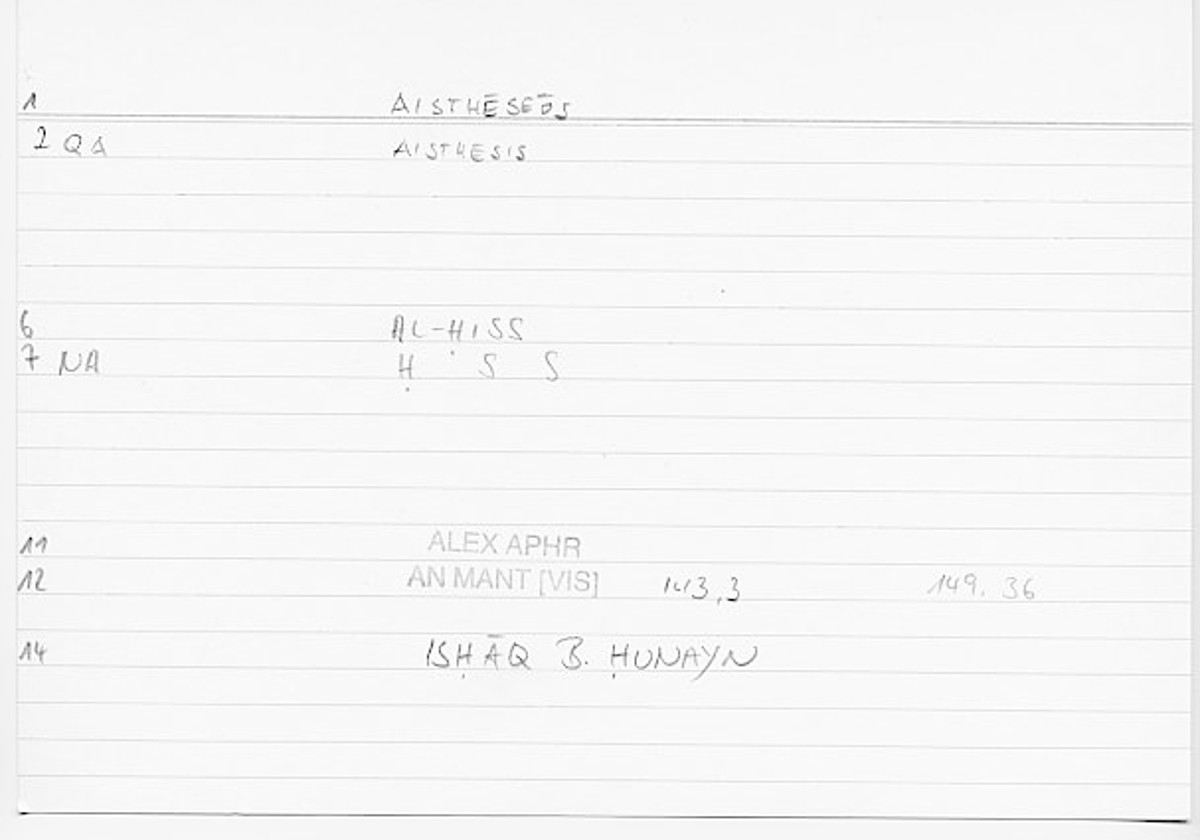 1 AISTHĒSEŌS
2 QA AISTHESIS
6 AL-HISS
7 NA Ḥ S S
11 ALEX APHR
12 AN MANT [VIS] 143,3 149.36
14 ISḤĀQ B. ḤUNAYN